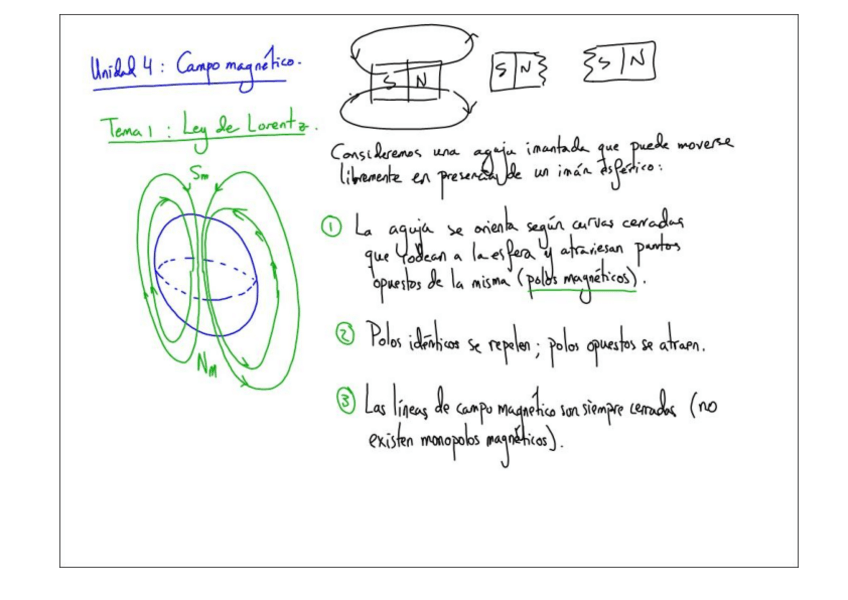 Unidad 4 : Campo magnético.
S N
S N
S N
Tema 1 : Ley de Lorentz.
Consideremos una aguja imantada que puede moverse
libremente en presencia de un imán esférico:
Sm
Nm
① La aguja se orienta según curvas cerradas
que rodean a la esfera y atraviesan puntos
opuestos de la misma (polos magnéticos).
② Polos idénticos se repelen; polos opuestos se atraen.
③ Las líneas de campo magnético son siempre cerradas (no
existen monopolos magnéticos).